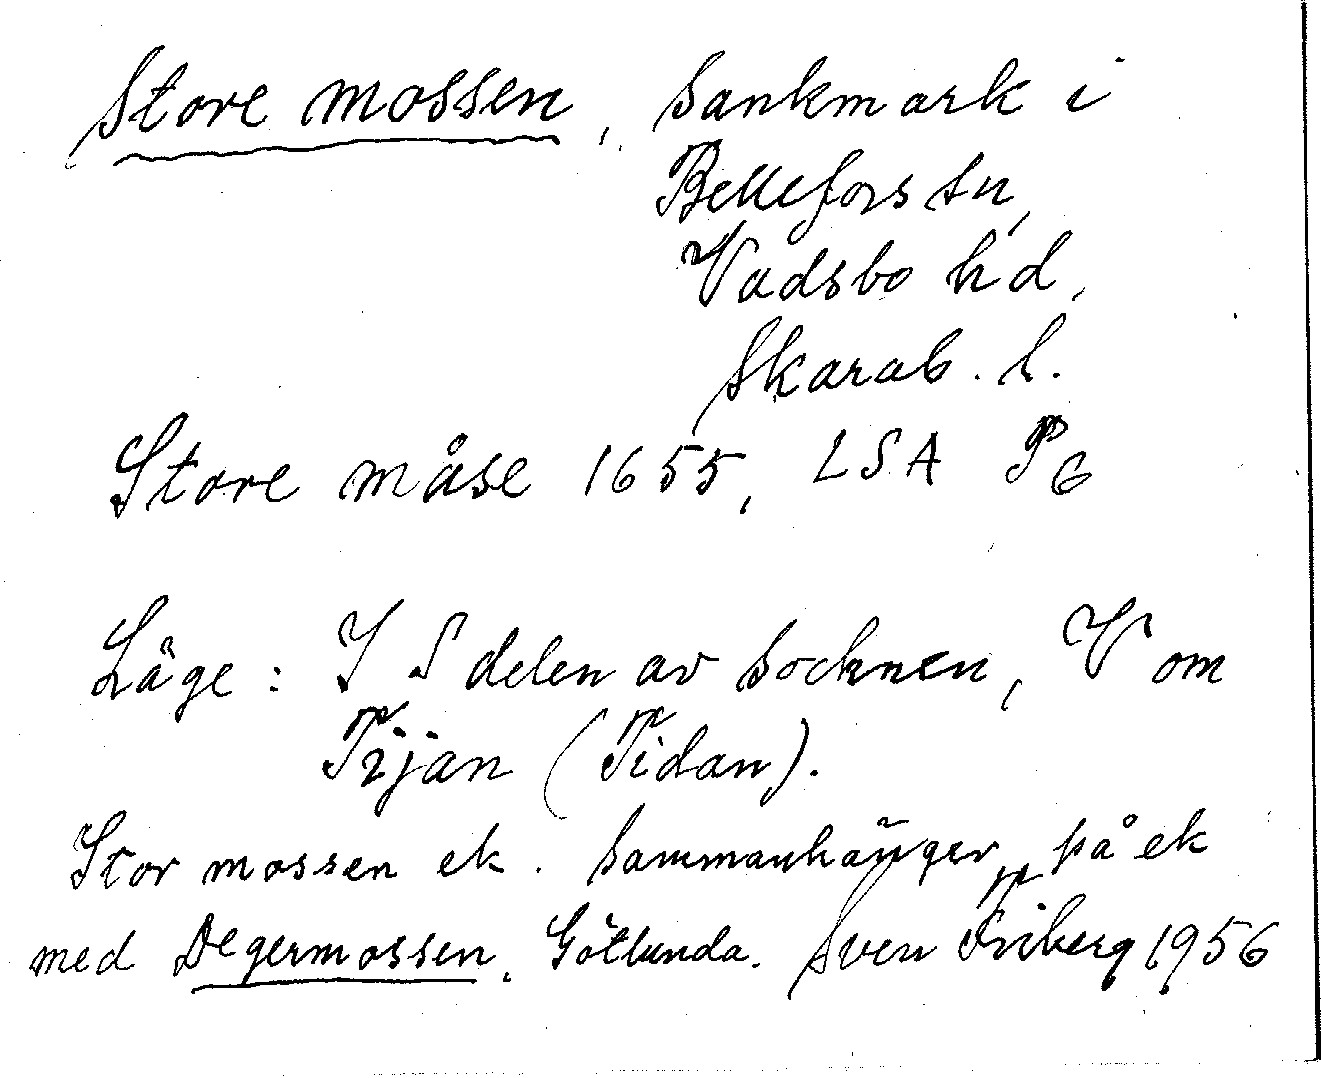 Store mossen, sankmark i
Bellefors sn,
Vadsbo hd,
Skarab. l.
Store måse 1655, LSA P6
Läge: I S delen av socknen, V om
Tijan (Tidan).
Stor mossen ek. Sammanhänger på ek
med Degermossen, Götlunda. Sven Friberg 1956